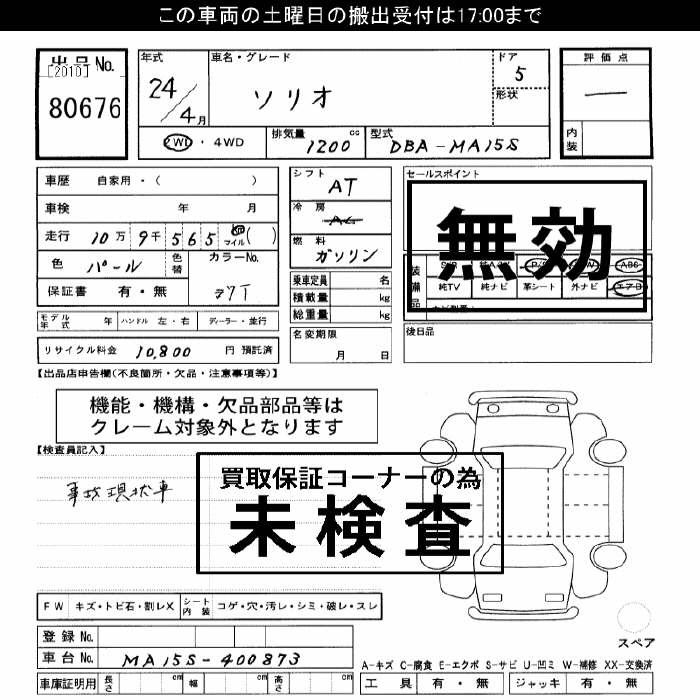 この車両の土曜日の搬出受付は17:00まで
出品No.
[2010]
80676
年式
24/4月
車名・グレード
ソリオ
ドア
5
形状
評価点
—
内装
2WD・4WD
排気量 1200 cc
型式 DBA-MA15S
車歴 自家用・( )
車検 年 月
走行 10万9千565 マイル( )
色 パール 色替 カラーNo.
保証書 有・無
シフト AT
冷房 AC
燃料 ガソリン
乗車定員 名
積載量 kg
総重量 kg
セールスポイント
無効
装備品
純TV 純ナビ 革シート 外ナビ エアロ
ABS
モデル年式 年 ハンドル 左・右 ディーラー・並行
名変期限
月 日
後日品
リサイクル料金 10,800 円 預託済
【出品店申告欄(不良箇所・欠品・注意事項等)】
機能・機構・欠品部品等は
クレーム対象外となります
【検査員記入】
事故現状車
買取保証コーナーの為
未検査
FW キズ・トビ石・割レX シート内装 コゲ・穴・汚レ・シミ・破レ・スレ
スペア
登録No.
車台No. MA15S-400873
A-キズ C-腐食 E-エクボ S-サビ U-凹ミ W-補修 XX-交換済
車庫証明用 長さ cm 幅 cm 高さ cm
工具 有・無 ジャッキ 有・無